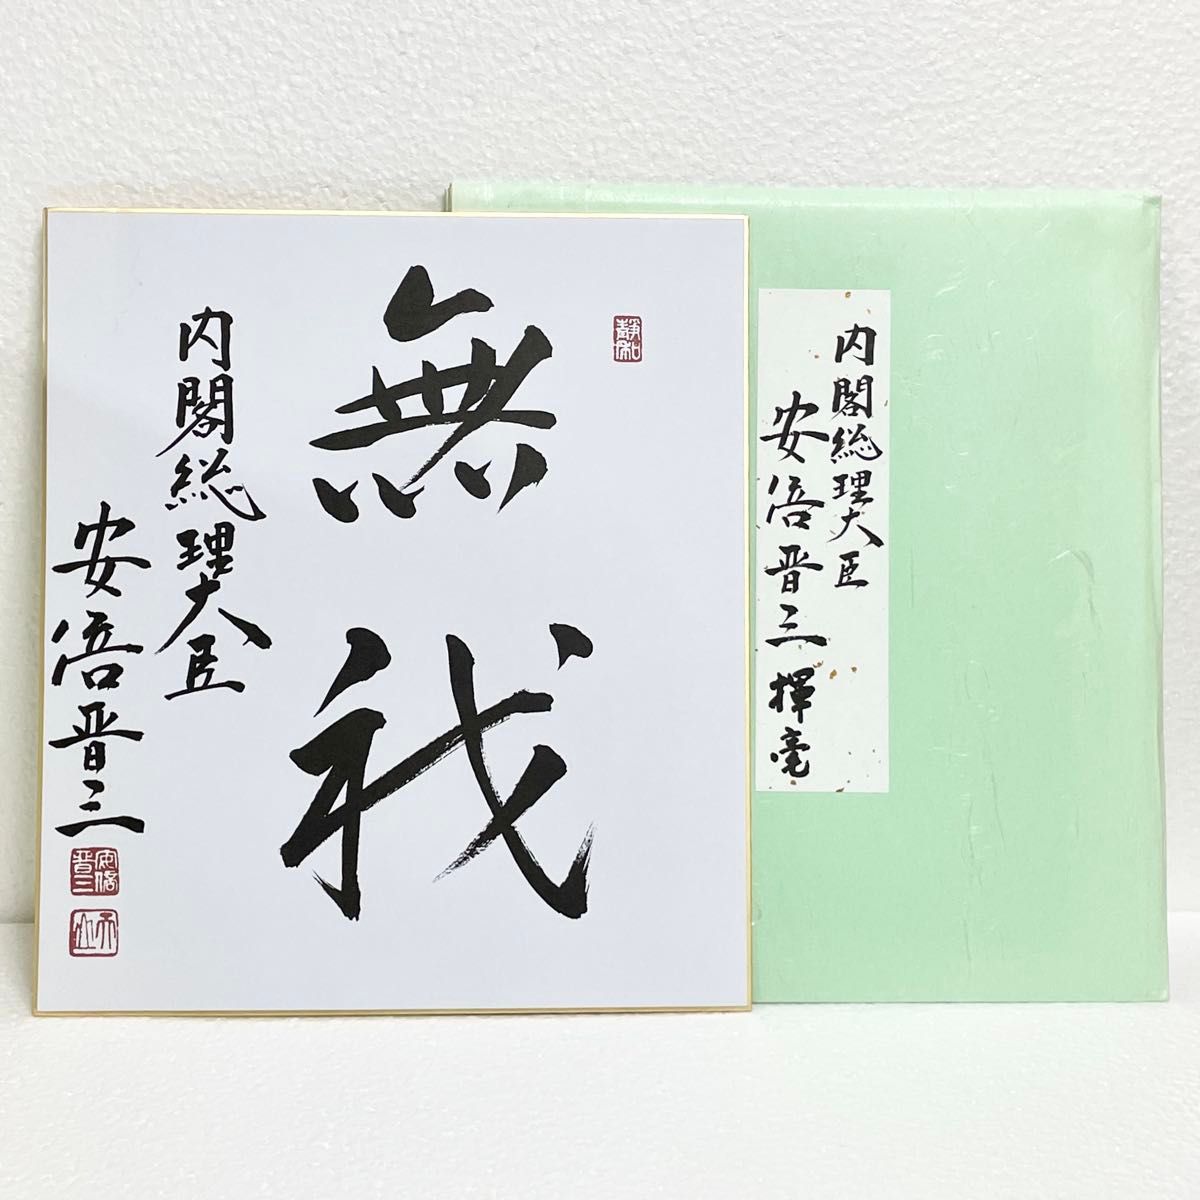 静和
無我
内閣総理大臣
安倍晋三
安倍晋三
内閣総理大臣
安倍晋三揮毫